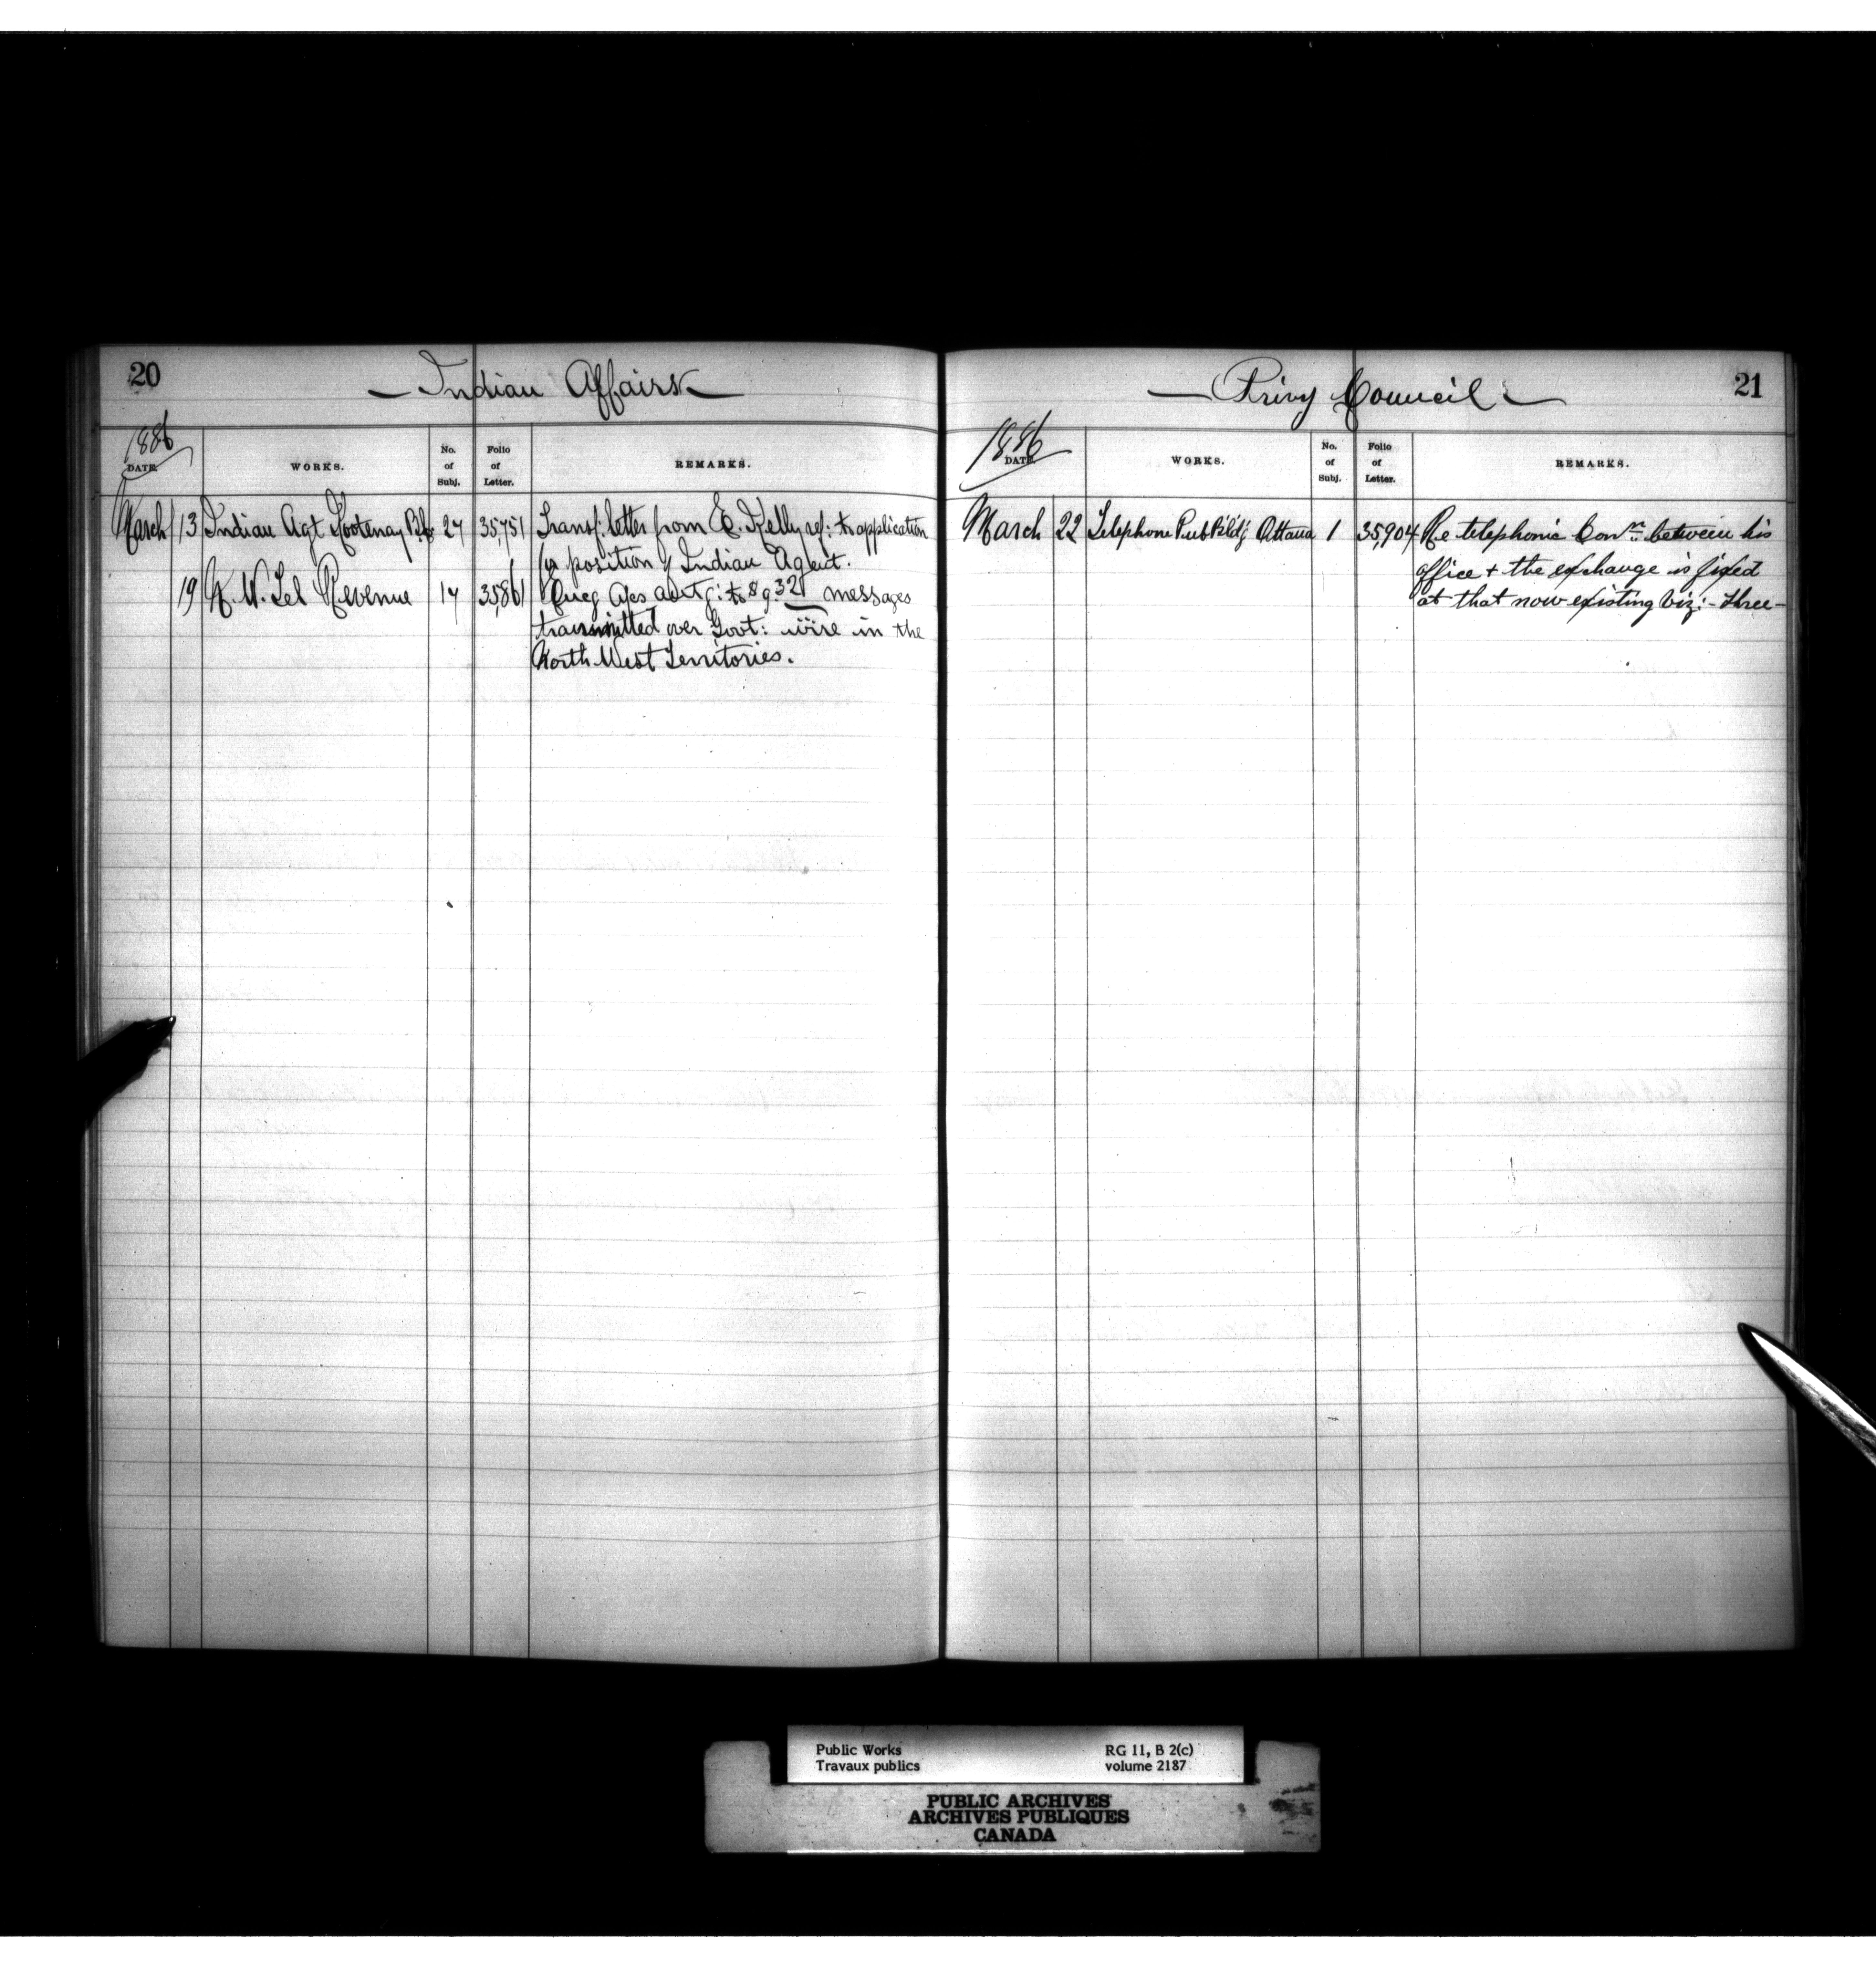 20
Indian Affairs
1886
DATE. WORKS. No. of Subj. Folio of Letter. REMARKS.
March 13 Indian Agt Kootenay B.C. 27 35,751 Transf: letter from E. Kelly ref: to application
for position of Indian Agent.
19 N.W. Tel Revenue 14 35,861 messages
transmitted over Govt: wire in the
North West Territories.
21
Privy Council
1886
DATE. WORKS. No. of Subj. Folio of Letter. REMARKS.
March 22 Telephone Pub Bldg Ottawa 1 35,904 Re telephonic Conn. between his
office + the exchange is fixed
at that now existing viz:- Three-
Public Works RG 11, B 2(c)
Travaux publics volume 2187
PUBLIC ARCHIVES
ARCHIVES PUBLIQUES
CANADA